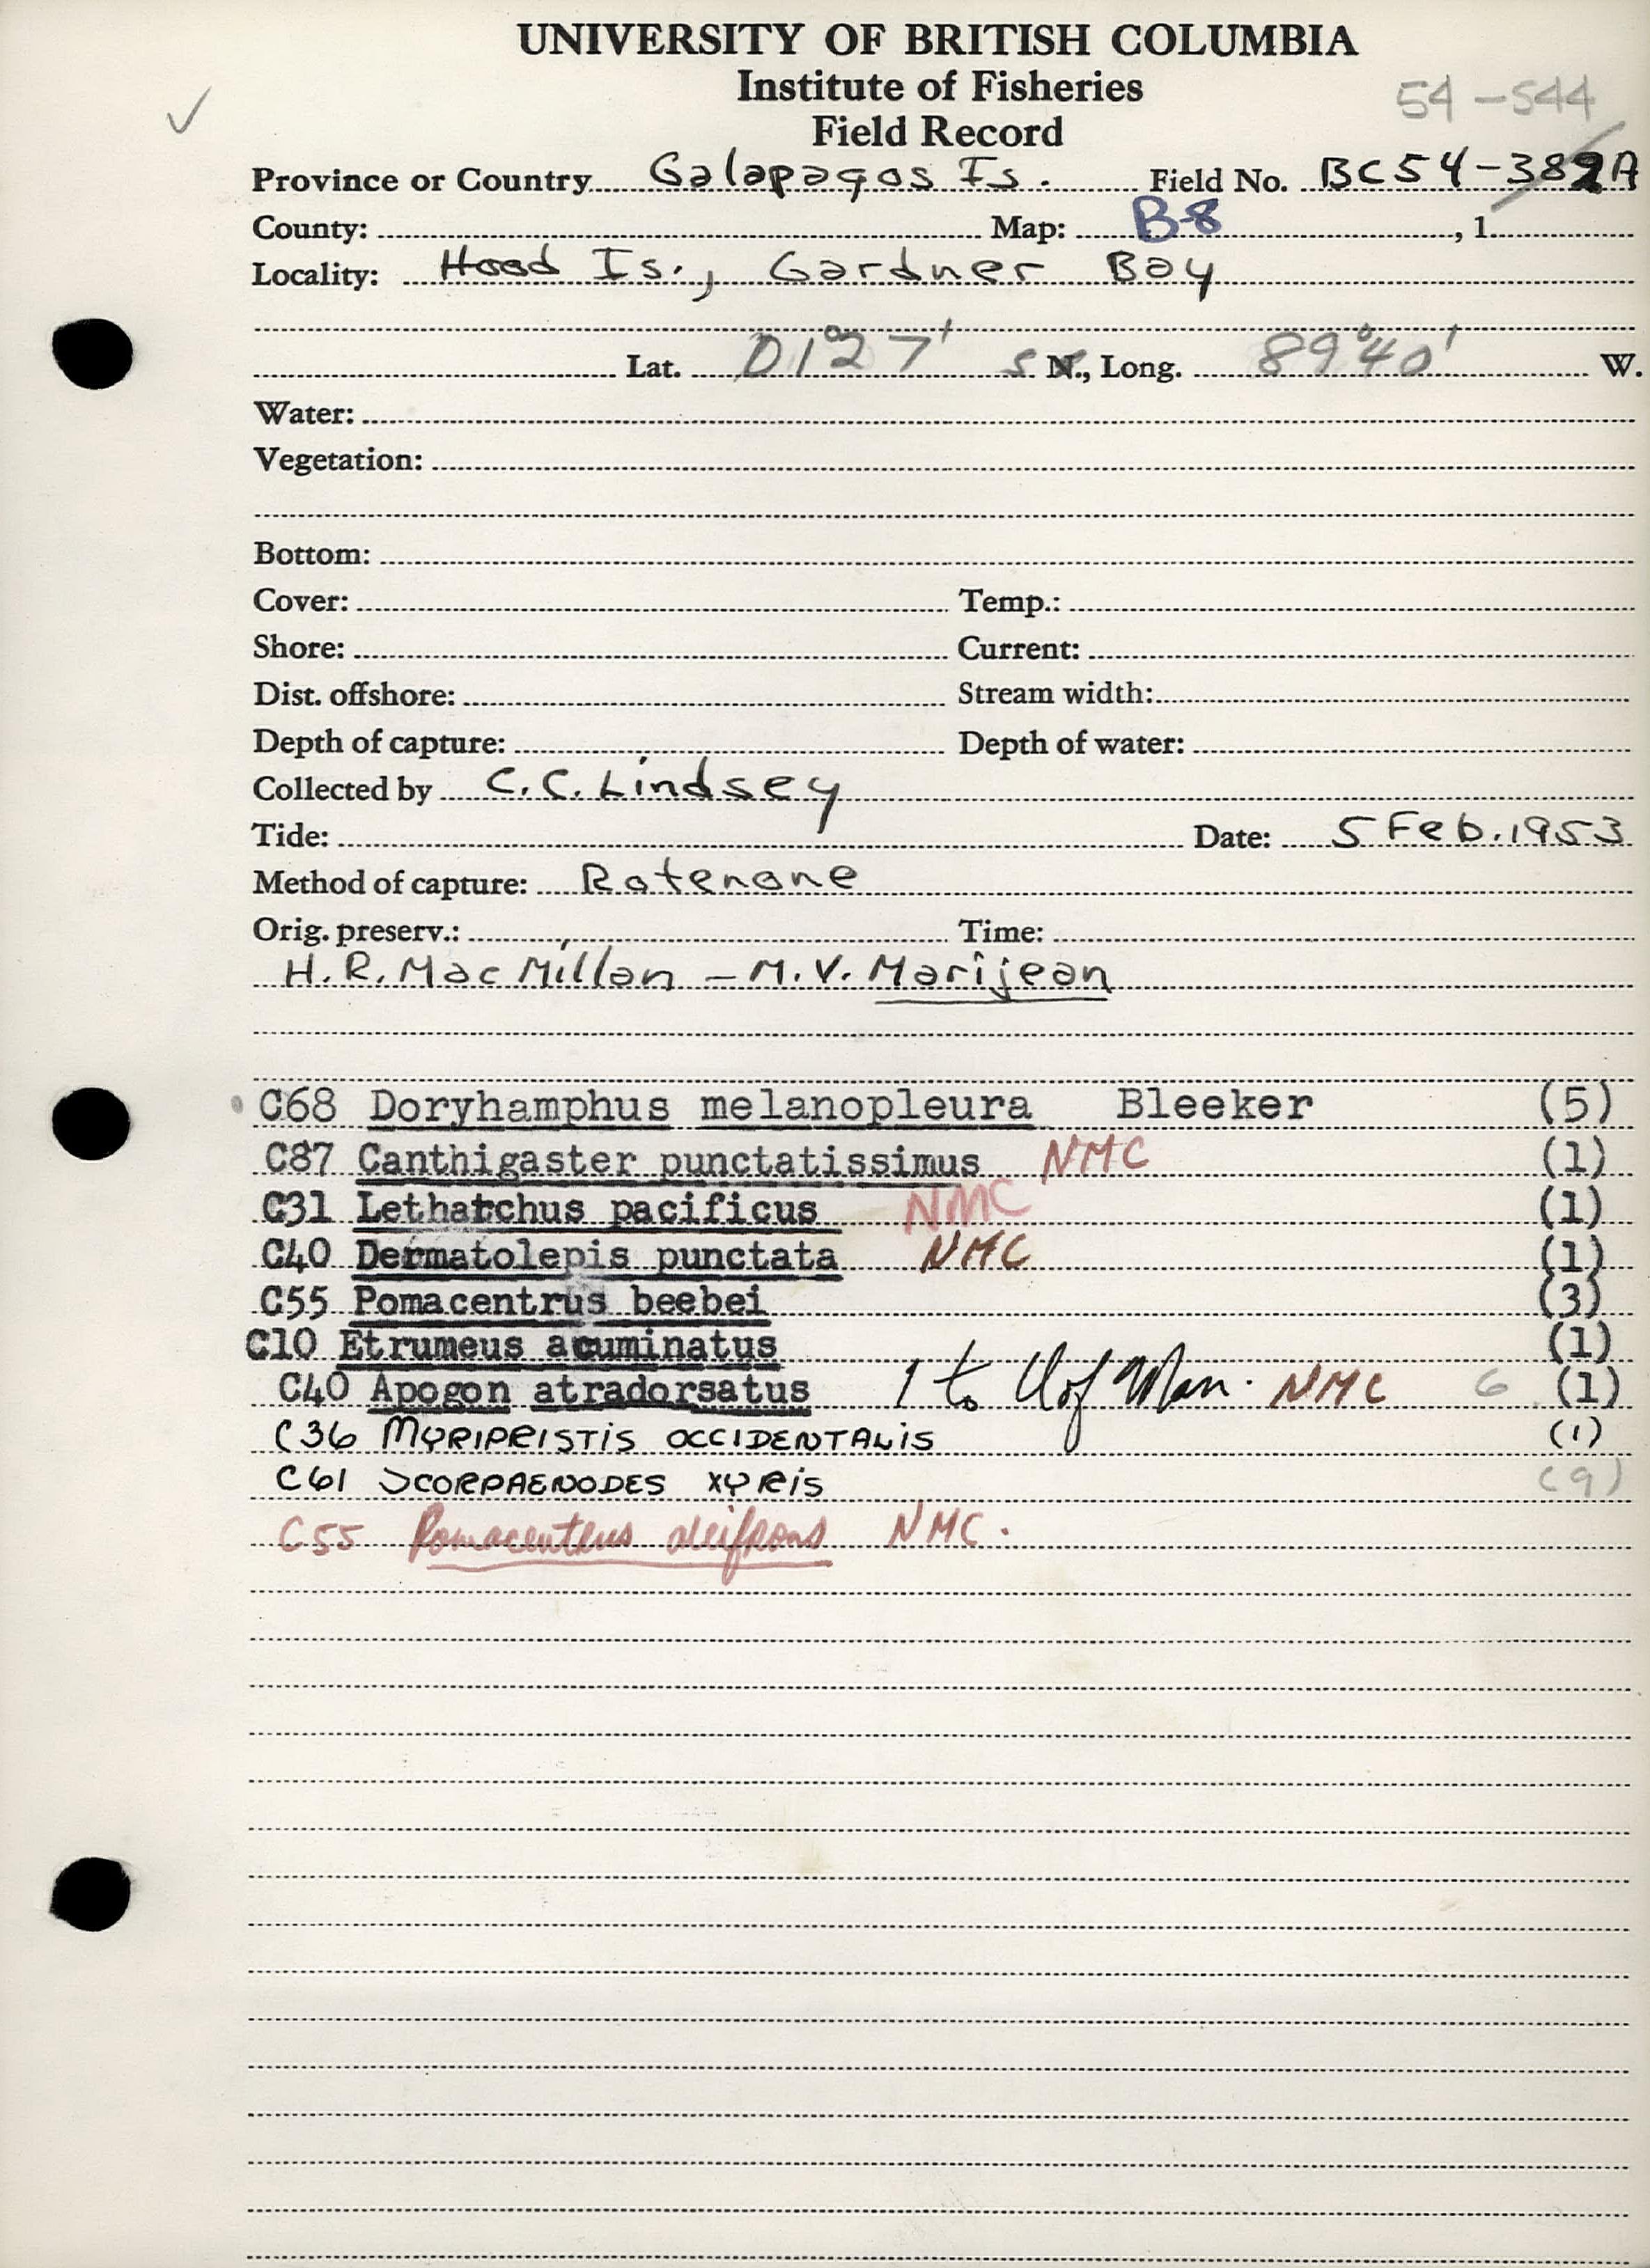 UNIVERSITY OF BRITISH COLUMBIA
Institute of Fisheries
54-544
Field Record
Province or Country Galapagos Is. Field No. BC54-382A
County: Map: B-8 , 1
Locality: Hood Is., Gardner Bay
Lat. 01°27' S N., Long. 89°40' W.
Water:
Vegetation:
Bottom:
Cover: Temp.:
Shore: Current:
Dist. offshore: Stream width:
Depth of capture: Depth of water:
Collected by C.C. Lindsey
Tide: Date: 5 Feb. 1953
Method of capture: Rotenone
Orig. preserv.: Time:
H.R. MacMillan - M.V. Marijean
C68 Doryhamphus melanopleura Bleeker (5)
C87 Canthigaster punctatissimus NMC (1)
C31 Letharchus pacificus NMC (1)
C40 Dermatolepis punctata NMC (1)
C55 Pomacentrus beebei (3)
C10 Etrumeus acuminatus (1)
C40 Apogon atradorsatus 1 to U of Man. NMC 6 (1)
C36 MYRIPRISTIS OCCIDENTALIS (1)
C61 SCORPAENODES XYRIS (9)
C55 Pomacentrus NMC.